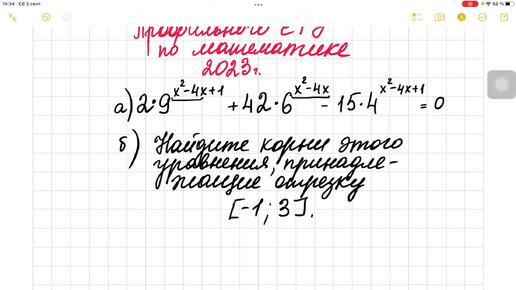 14:34 Сб 3 сент.
56 %
Профильного ЕГЭ
по математике
2023г.
а) 2·9^(x²-4x+1) + 42·6^(x²-4x) - 15·4^(x²-4x+1) = 0
б) Найдите корни этого
уравнения, принадле-
жащие отрезку
[-1; 3].